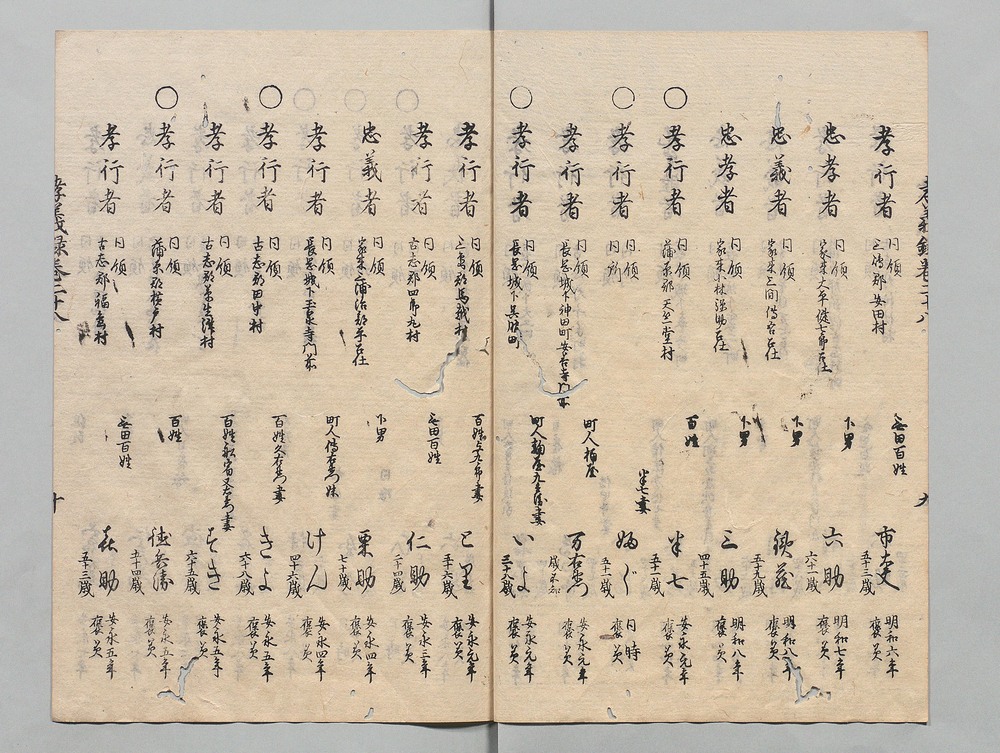 孝義録巻二十八
孝行者 同領 三嶋郡安田村 無田百姓 市太夫 五十三歳 明和六年 褒美
忠孝者 同領 家来大平健七郎召仕 下男 六助 六十一歳 明和七年 褒美
忠義者 同領 下男 五十九歳 明和八年 褒美
忠孝者 同領 家来小林 召仕 下男 三助 四十五歳 明和八年 褒美
○ 孝行者 同領 蒲原郡 村 百姓 半七 五十歳 安永元年 褒美
○ 孝行者 同領 同所 半七妻 五十一歳 同時 褒美
孝行者 同領 長岡城下神田町安善寺門前 町人 万右衛門 歳不知 安永元年 褒美
○ 孝行者 同領 長岡城下呉服町 町人 妻 いよ 三十八歳 安永元年 褒美
九
孝行者 同領 三嶋郡馬越村 百姓 妻 とり 五十六歳 安永元年 褒美
孝行者 同領 古志郡四郎丸村 無田百姓 仁助 二十四歳 安永三年 褒美
忠義者 同領 家来三浦治郎平召仕 下男 栗助 七十歳 安永四年 褒美
孝行者 同領 長岡城下玉泉寺門前 町人傳右衛門妹 けん 四十六歳 安永四年 褒美
○ 孝行者 同領 古志郡田中村 百姓久右衛門妻 きよ 六十八歳 安永五年 褒美
孝行者 同領 古志郡 村 百姓 妻 すき 六十五歳 安永五年 褒美
○ 孝行者 同領 蒲原郡横戸村 百姓 徳兵衛 五十四歳 安永五年 褒美
孝行者 同領 古志郡福嶋村 無田百姓 喜助 五十三歳 安永五年 褒美
孝義録巻二十八
十